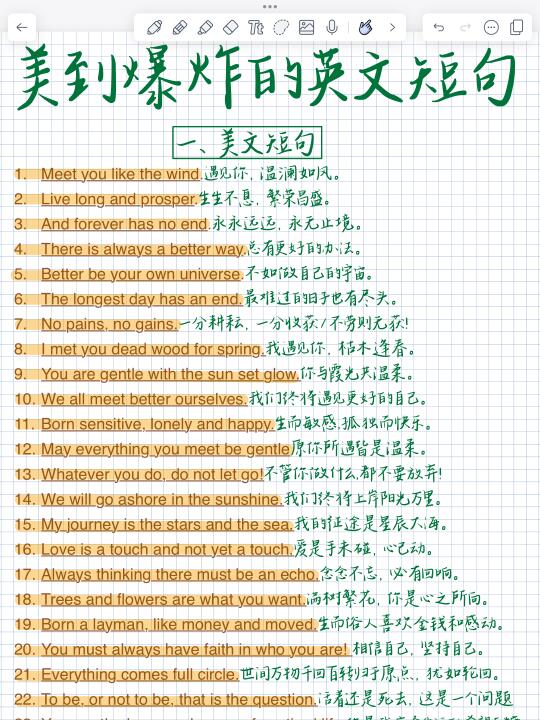 美到爆炸的英文短句
一、美文短句
1. Meet you like the wind.遇见你，温澜如风。
2. Live long and prosper.生生不息，繁荣昌盛。
3. And forever has no end.永永远远，永无止境。
4. There is always a better way.总有更好的办法。
5. Better be your own universe.不如做自己的宇宙。
6. The longest day has an end.最难过的日子也有尽头。
7. No pains, no gains.一分耕耘，一分收获/不劳则无获!
8. I met you dead wood for spring.我遇见你，枯木逢春。
9. You are gentle with the sun set glow.你与霞光共温柔。
10. We all meet better ourselves.我们终将遇见更好的自己。
11. Born sensitive, lonely and happy.生而敏感,孤独而快乐。
12. May everything you meet be gentle原你所遇皆是温柔。
13. Whatever you do, do not let go!不管你做什么,都不要放弃!
14. We will go ashore in the sunshine.我们终将上岸阳光万里。
15. My journey is the stars and the sea.我的征途是星辰大海。
16. Love is a touch and not yet a touch.爱是手未碰，心已动。
17. Always thinking there must be an echo.念念不忘，必有回响。
18. Trees and flowers are what you want.满树繁花，你是心之所向。
19. Born a layman, like money and moved.生而俗人喜欢金钱和感动。
20. You must always have faith in who you are! 相信自己，坚持自己。
21. Everything comes full circle.世间万物千回百转归于原点，犹如轮回。
22. To be, or not to be, that is the question.活着还是死去，这是一个问题